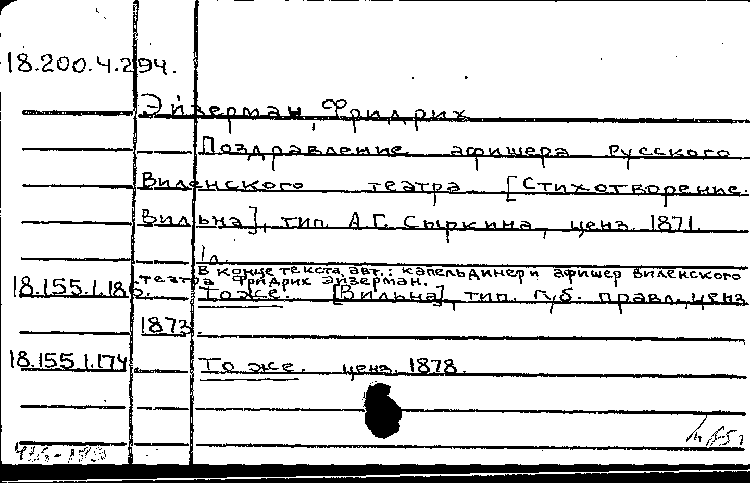 18.200.4.294.
Эйзерман, Фридрих
Поздравление афишера Русского
Виленского театра. [Стихотворение.
Вильна], тип. А.Г. Сыркина, ценз. 1871.
1 л.
В конце текста авт.: капельдинер и афишер Виленского
театра Фридрих Эйзерман.
18.155.1.186. То же. [Вильна], тип. губ. правл., ценз
1873.
18.155.1.174 То же. ценз. 1878.